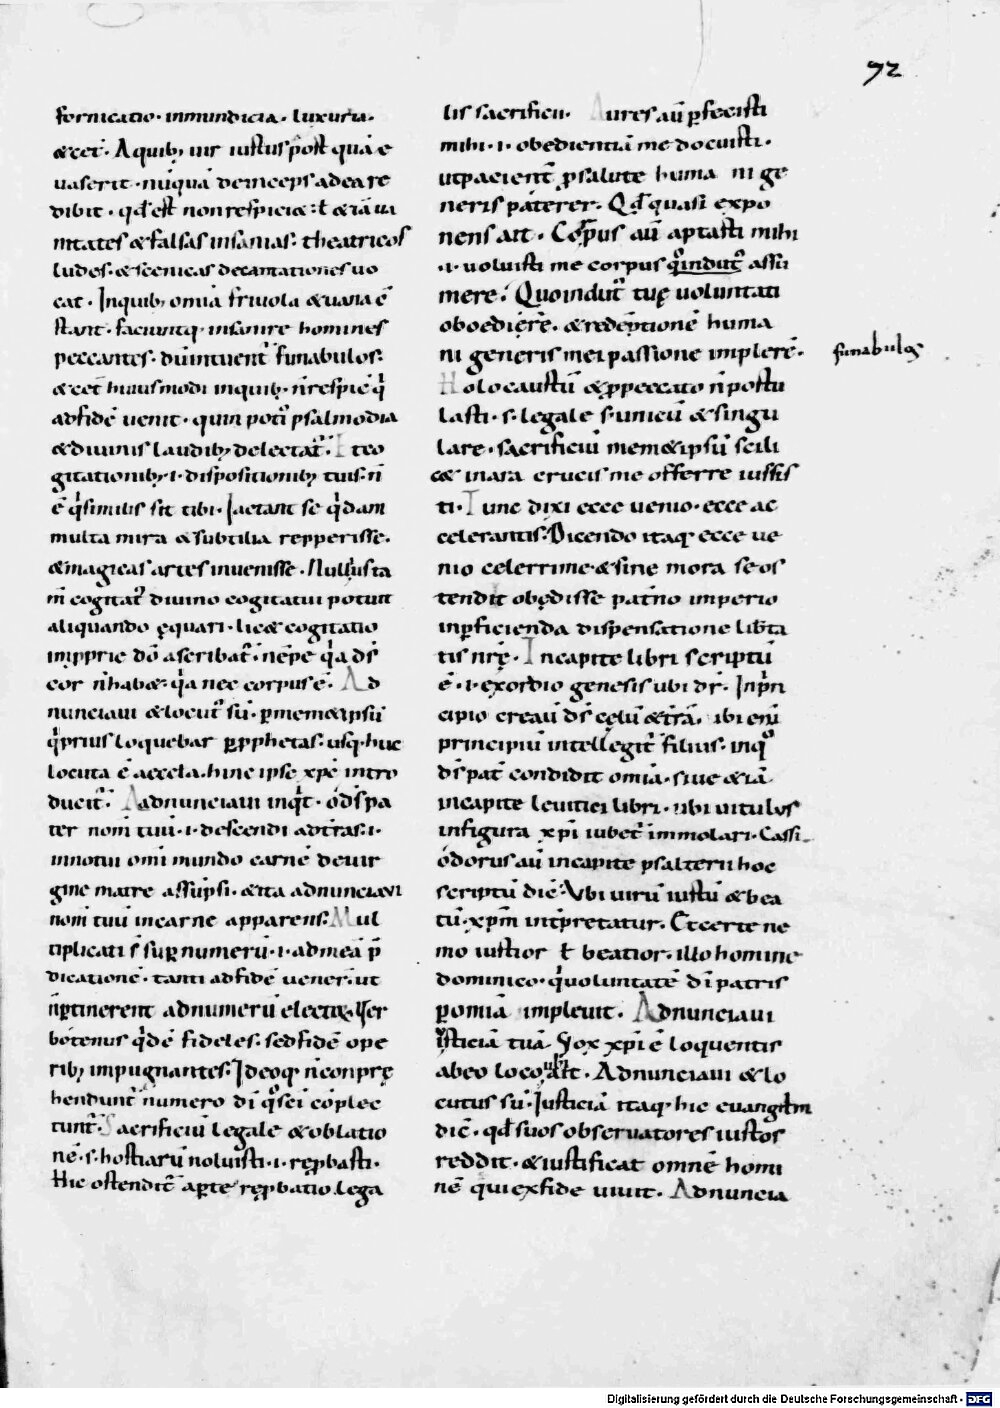 72
fornicatio · inmundicia · luxuria ·
&cet̄ · A quib; uir iustus p̊ost quā e
uaserit · nūquā deinceps ad ea re
dibit · qđ est non respicia& ł &iā ua
nitates & falsas insanias · theatricos
ludos · & scenicas decantationes uo
cat · Inquib; om̄ia friuola & uana ē
stant · faciuntq; insanire homines
peccantes · dū intuent᷑ funabulos ·
&cet̄ huiusmodi inquib; ń respic̄ q᷑
ad fidē uenit · quin poti᷑ psalmodia
& diuinis laudib; delectat᷑ · Et co
gitationib; · i · dispositionib; tuis · ń
ē q̇ similis sit tibi · Iactant se q̇dam
multa mira & subtilia repperisse ·
& magicas artes inuenisse · Nullus ta
m̄ cogitat᷑ diuino cogitatui potuit
aliquando ęquari · lic& cogitatio
imp̱prie dō ascribat᷑ · nēpe q̇a dś
cor ń hab& · q̇a nec corpus ē · Ad
nunciaui & locut᷑ sū · p̱ mem&ipsū
q̇ prius loquebar p̱ p̱phetas · usq; huc
locuta ē aeccła · hinc ipse xp̄c intro
ducit᷑ · Adnunciaui inq̇t · o dś pa
ter nom̄ tuū · i · descendi ad t̄ras · i ·
innotui om̄i mundo carnē de uir
gine matre assūpsi · & ita adnunciaui
nom̄ tuū incarne apparens · Mul
tiplicati s̄ sup̱ numerū · i · ad meā p̄
dicationē · tanti ad fidē uener̄ · ut
ń p̱tinerent ad numerū elector̄ · Uer
botenus q̇dē fideles · sed fidē ope
rib; impugnantes · Ideoq; ń conprę
hendunt᷑ numero di᷑ q̇ sci᷑ cōplec
tunt᷑ · Sacrificiū legale & oblatio
nē · s · hostiarū noluisti · i · rep̱basti ·
Hic ostendit᷑ ap̱te rep̱batio lega
lis sacrificii · Aures aū p̱fecisti
mihi · i · obedientiā me docuisti ·
ut pacient̄ p̱ salute huma ni ge
neris paterer · Qđ quasi expo
nens ait · Corpus aū aptasti mihi
· i · uoluisti me corpus q̊ indut᷑ assu
mere · Quo indut᷑ tuę uoluntati
oboedirē · & redēptionē huma
ni generis mei passione implerē ·
funabulos
Holocaustū & p̱ peccato ń postu
lasti · s · legale s; unicū & singu
lare · sacrificiū mem&ipsū scili
c& in ara crucis me offerre iussis
ti · Tunc dixi ecce uenio · ecce ac
celerantis · Dicendo itaq; ecce ue
nio celerrime & sine mora se os
tendit obędisse pat̄no imperio
inp̱ficienda dispensatione lib̄ta
tis nr̄ę · In capite libri scriptū
ē · i · exordio genesis ubi dr̄ · In p̄n
cipio creaū dś cęlū & t̄rā · ibi eni᷑
principiū intellegit᷑ filius · in q̊
dś pat̄ condidit om̄ia · siue & iā
incapite leuitici libri · ubi uitulos
in figura xp̄i iubet᷑ immolari · Cassi
odorus aū incapite psalterii hoc
scriptū dic̄ · Ubi uirū iustū & bea
tū · xp̄m int̄pretatur · Et certe ne
mo iustior ł beatior · illo homine
dominico · q̇ uoluntatē di᷑ patris
p̱ om̄ia impleuit · Adnunciaui
iusticiā tuā · Vox xp̄i ē loquentis
ab eo loco ubi ait · Adnunciaui & lo
cutus sū · Iusticiā itaq; hic euangłm
dic̄ · qđ suos obseruatores iustos
reddit · & iustificat omnē homi
nē qui ex fide uiuit · Adnuncia
Digitalisierung gefördert durch die Deutsche Forschungsgemeinschaft - DFG